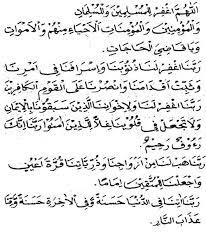 اللهم اغفر للمسلمين والمسلمات
والمؤمنين والمؤمنات الأحياء منهم والأموات
ويا قاضي الحاجات
ربنا اغفر لنا ذنوبنا وإسرافنا في أمرنا
وثبت أقدامنا وانصرنا على القوم الكافرين
ربنا اغفر لنا ولإخواننا الذين سبقونا بالإيمان
ولا تجعل في قلوبنا غلا للذين آمنوا ربنا إنك
رءوف رحيم
ربنا هب لنا من أزواجنا وذرياتنا قرة أعين
واجعلنا للمتقين إماما
ربنا آتنا في الدنيا حسنة وفي الآخرة حسنة وقنا
عذاب النار